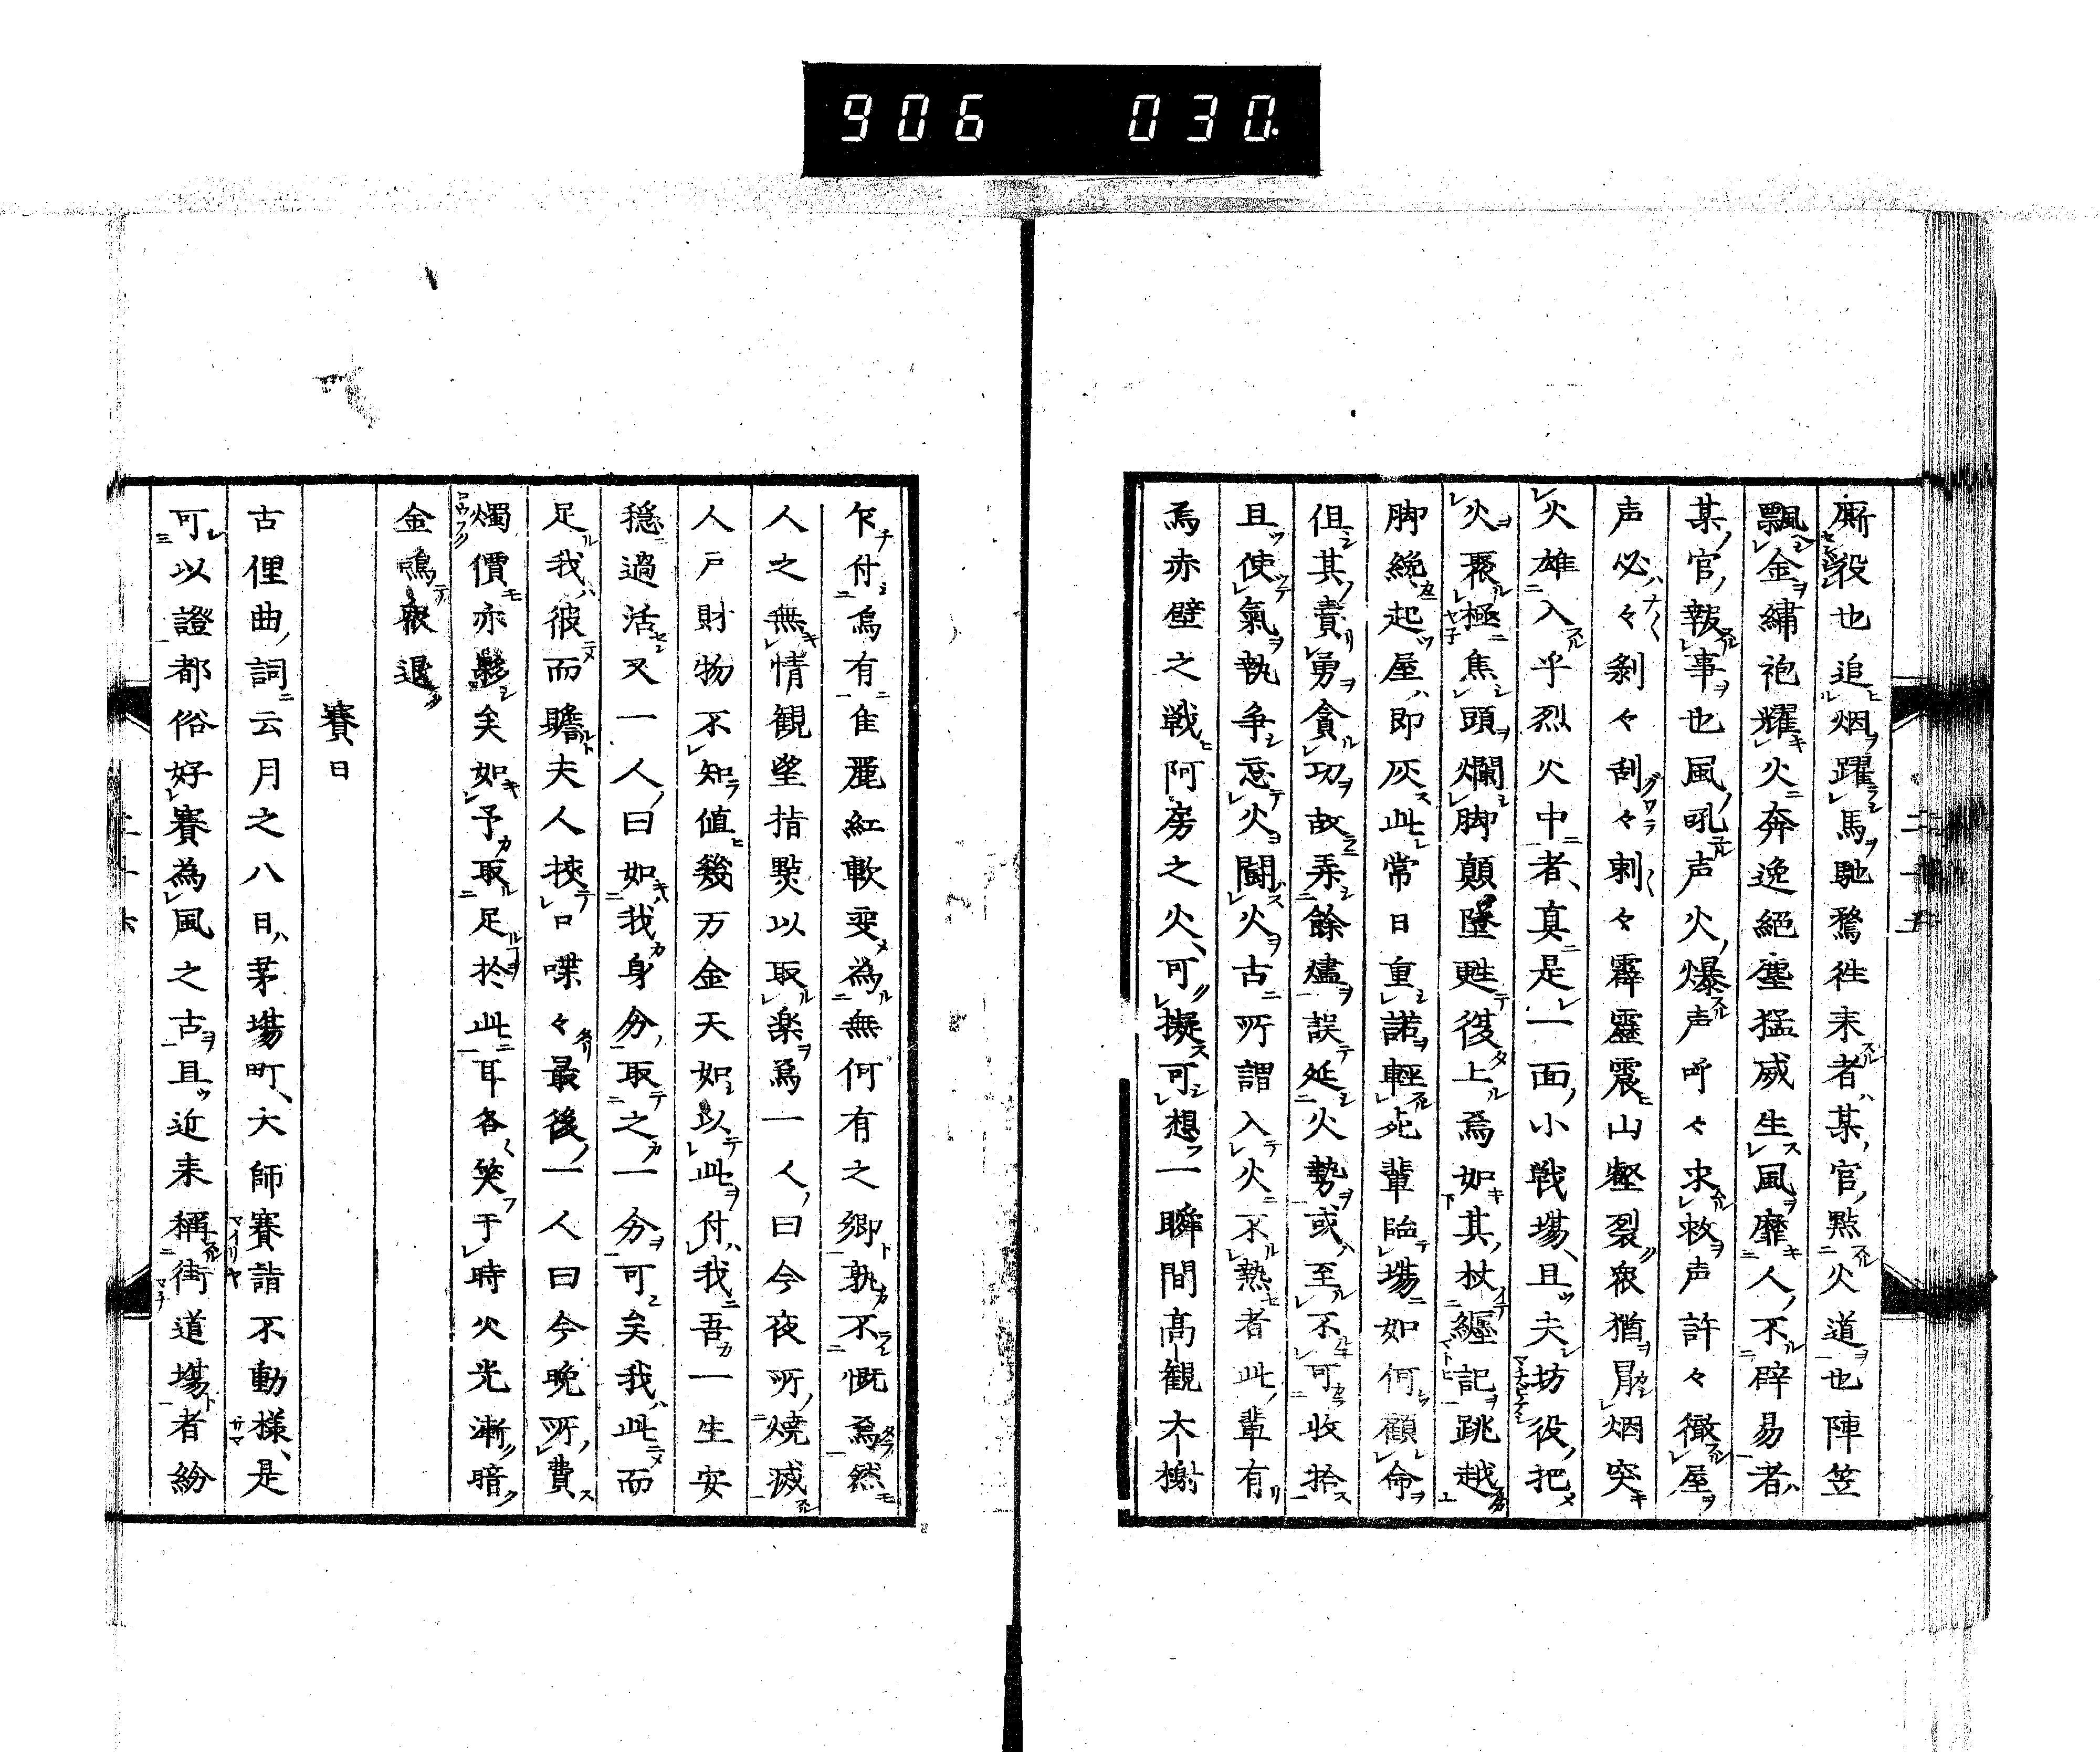 906 030
廝役也追烟躍馬馳鶩徃来者某官點火道也陣笠
飄金繡袍耀火奔逸絕塵猛威生風靡人不辟易者
某官報事也風吼声火爆声呼々求救声許々徹屋
声必々剝々刮々剌々霹靂震山壑裂衆猶冐烟突
火雄入乎烈火中者真是一面小戦場且夫坊役把
火褁極焦頭爛脚顛墜甦復上焉如其杖纏記跳越
脚絶起屋即灰此常日重諾軽死輩臨場如何顧命
但其責勇貪功故弄餘燼誤延火勢或至不可收拾
且使氣執争忘火闘火古所謂入火不熱者此輩有
焉赤壁之戦阿房之火可擬可想一瞬間高観大榭
乍付烏有隹麗紅軟変為無何有之郷孰不慨焉然
人之無情観望指㸃以取楽焉一人曰今夜所焼滅
人戸財物不知値幾万金天如以此付我吾一生安
穏過活又一人曰如我身分取之一分可矣我此而
足我彼而贍夫人挟口喋々最後一人曰今晩所費
燭價亦夥矣如予取足於此耳各笑于時火光漸暗
金鳴衆退
賽日
古俚曲詞云月之八日茅場町大師賽詣不動様是
可以證都俗好賽為風之古且近来稱街道塲者紛